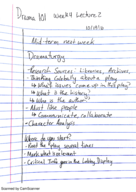 Drama 101 Week 4 Lecture 2
10/19/16
Mid-term next week
Dramaturgy
- Research Sources: Libraries, Archives,
- Thinking Critically about a play
↳ What issues come up in the play?
↳ What is the history?
↳ Who is the author?
- Must like people
↳ Communicate, collaborate
- Character Analysis
Where do you start?
- Read the play several times
- Mark what is relevant
- Critical Think goes in the Lobby Display
Scanned by CamScanner